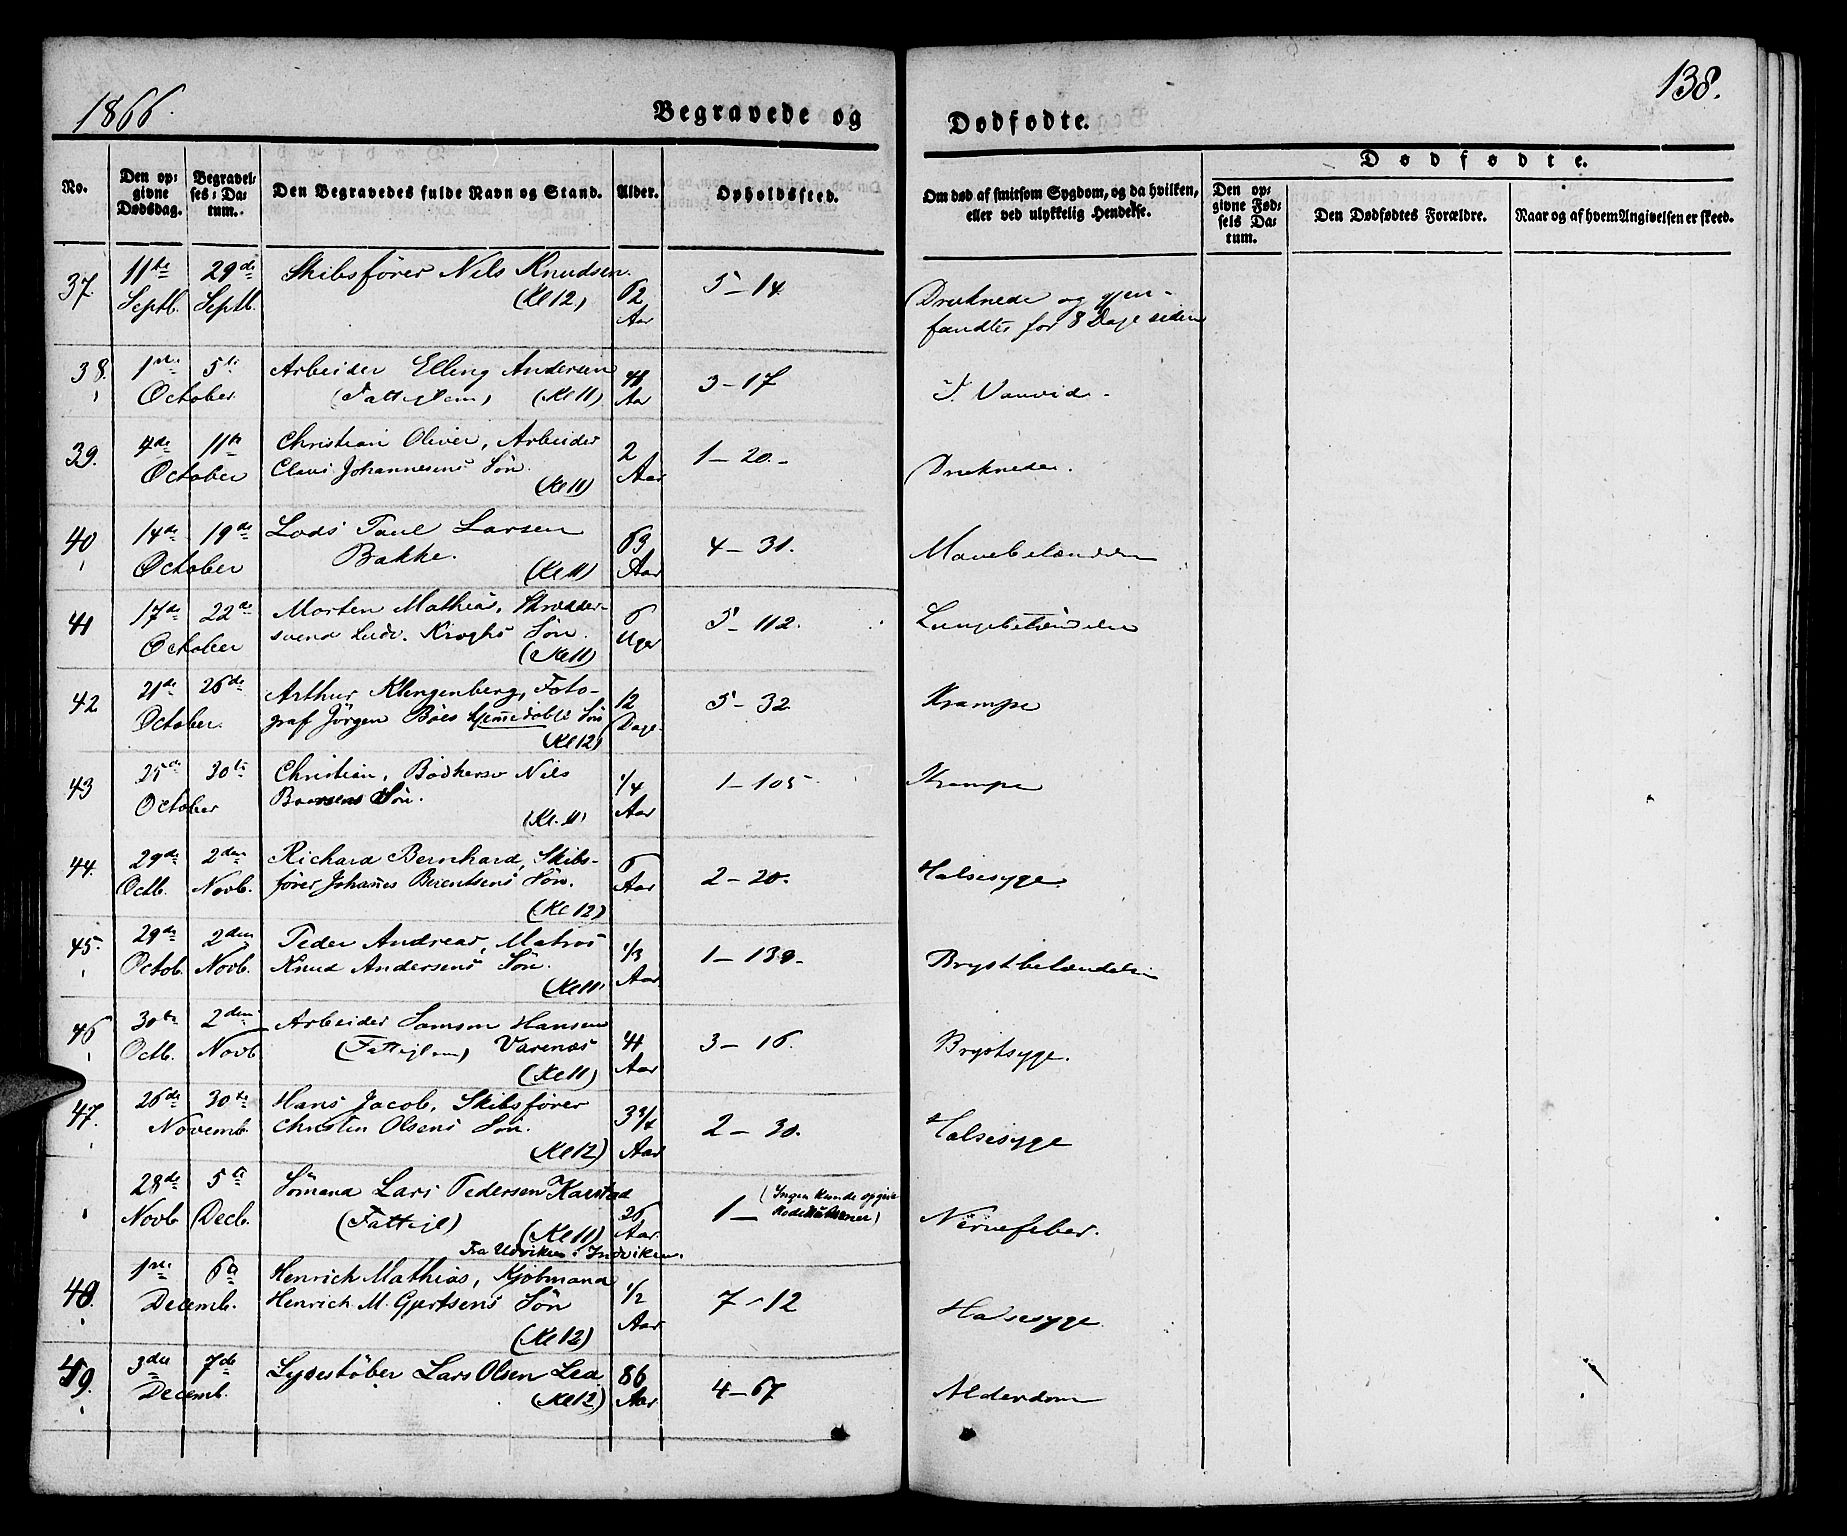 1866.
Begravede og
Dødfødte.
138.
No.
Den op-
givne
Dødsdag.
Begravel-
ses-Da-
tum.
Den Begravedes fulde Navn og Stand.
Alder.
Opholdssted.
Om død af smitsom Sygdom, og da hvilken,
eller ved ulykkelig Hendelse.
Dødfødte.
Den op-
givne Fød-
sels Da-
tum.
Den Dødfødtes Forældre.
Naar og af hvem Angivelsen er skeed.
37.
11te
Septb.
29de
Septb.
Skibsfører Nils Knudsen
(Kl 12)
62
Aar
5 - 14.
Druknede og gjen-
fandtes for 8 Dage siden
38.
1ste
5te
October
Arbeider Elling Andersen
(Fattiglem) (Kl 11)
48
Aar
3 - 17
I Vanvid.
39.
4de
11te
October
Christian Oliver, Arbeider
Claus Johannesens Søn.
(Kl 11)
2
Aar
1 - 20.
Druknede.
40
14de
19de
October
Lods Paul Larsen
Bakke.
(Kl 11)
63
Aar
4 - 31.
Mavebetændelse
41
17de
22de
October
Morten Mathias, Skrædder-
svend Ludv. Kroghs Søn.
(Kl 11)
6
Uger
5 - 112.
Lungebetændelse
42
21de
26de
October.
Arthur Klengenberg, Foto-
graf Jörgen Böes hjemedöbte Søn
(Kl 12)
12
Dage
5 - 32
Krampe
43
25de
30te
October
Christian, Bödkersv Nils
Søn.
(Kl. 11)
1/4
Aar
1 - 105
Krampe
44.
29de
Octb.
2den
Novb.
Richard Bernhard, Skibs-
fører Johannes Berentsens Søn.
(Kl 12)
6
Aar
2 - 20.
Halsesyge.
45.
29de
Octob.
2den
Novb.
Peder Andreas, Matros
Knud Andersens Søn.
(Kl 11)
1/3
Aar
1 - 139.
Brystbetændelse
46
30te
Octb.
2den
Novb
Arbeider Samson Hansen
(Fattiglem) Varenæs
(Kl 11)
41
Aar
3 - 16.
Brystsyge.
47.
26de
30te
Novemb.
Hans Jacob, Skibsfører
Christen Olsens Søn.
(Kl 12)
3 3/4
Aar
2 - 30.
Halsesyge
28de
Novb
5te
Decb.
Sömand Lars Pedersen Karstad
(Fattigl) (Kl 11)
Fra Udviken i Indviken.
26
Aar.
1 - (Ingen kunde opgive
Rode &
Nervefeber.
48.
1ste
6te
Decemb.
Henrich Mathias, Kjøbmand
Henrich M. Gjertsens Søn
(Kl 12)
1/2
Aar
7 - 12
Halsesyge.
49.
3die
7de
Decemb.
Lysestøber Lars Olsen Lea
(Kl 12)
86
Aar
4 - 67
Alderdom